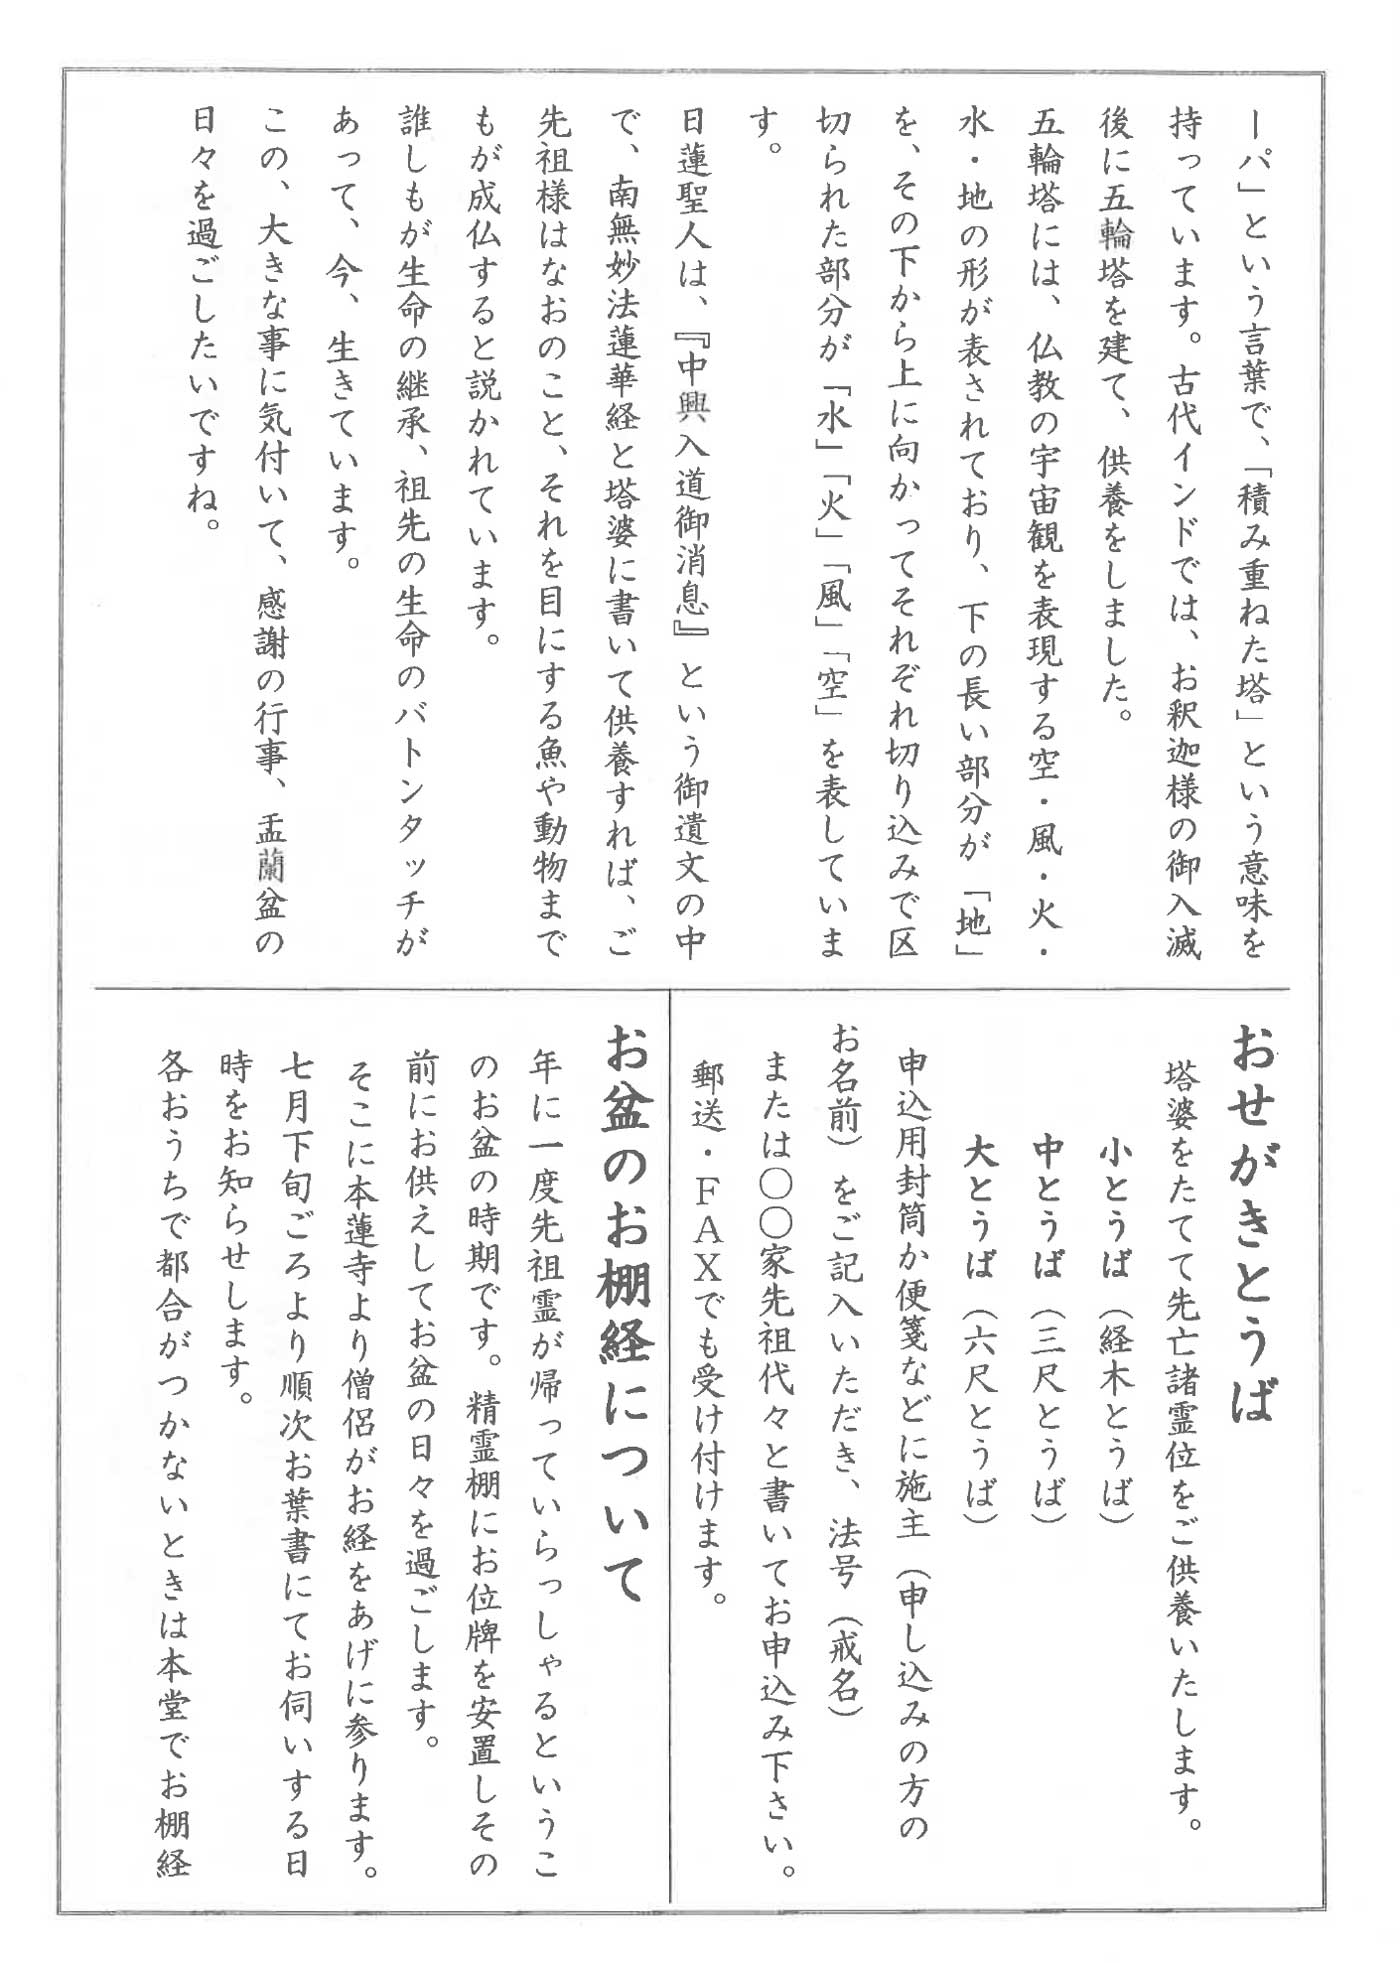 ーパ」という言葉で、「積み重ねた塔」という意味を
持っています。古代インドでは、お釈迦様の御入滅
後に五輪塔を建て、供養をしました。
五輪塔には、仏教の宇宙観を表現する空・風・火・
水・地の形が表されており、下の長い部分が「地」
を、その下から上に向かってそれぞれ切り込みで区
切られた部分が「水」「火」「風」「空」を表していま
す。
日蓮聖人は、『中興入道御消息』という御遺文の中
で、南無妙法蓮華経と塔婆に書いて供養すれば、ご
先祖様はなおのこと、それを目にする魚や動物まで
もが成仏すると説かれています。
誰しもが生命の継承、祖先の生命のバトンタッチが
あって、今、生きています。
この、大きな事に気付いて、感謝の行事、盂蘭盆の
日々を過ごしたいですね。
おせがきとうば
塔婆をたてて先亡諸霊位をご供養いたします。
小とうば（経木とうば）
中とうば（三尺とうば）
大とうば（六尺とうば）
申込用封筒か便箋などに施主（申し込みの方の
お名前）をご記入いただき、法号（戒名）
または〇〇家先祖代々と書いてお申込み下さい。
郵送・ＦＡＸでも受け付けます。
お盆のお棚経について
年に一度先祖霊が帰っていらっしゃるというこ
のお盆の時期です。精霊棚にお位牌を安置しその
前にお供えしてお盆の日々を過ごします。
そこに本蓮寺より僧侶がお経をあげに参ります。
七月下旬ごろより順次お葉書にてお伺いする日
時をお知らせします。
各おうちで都合がつかないときは本堂でお棚経